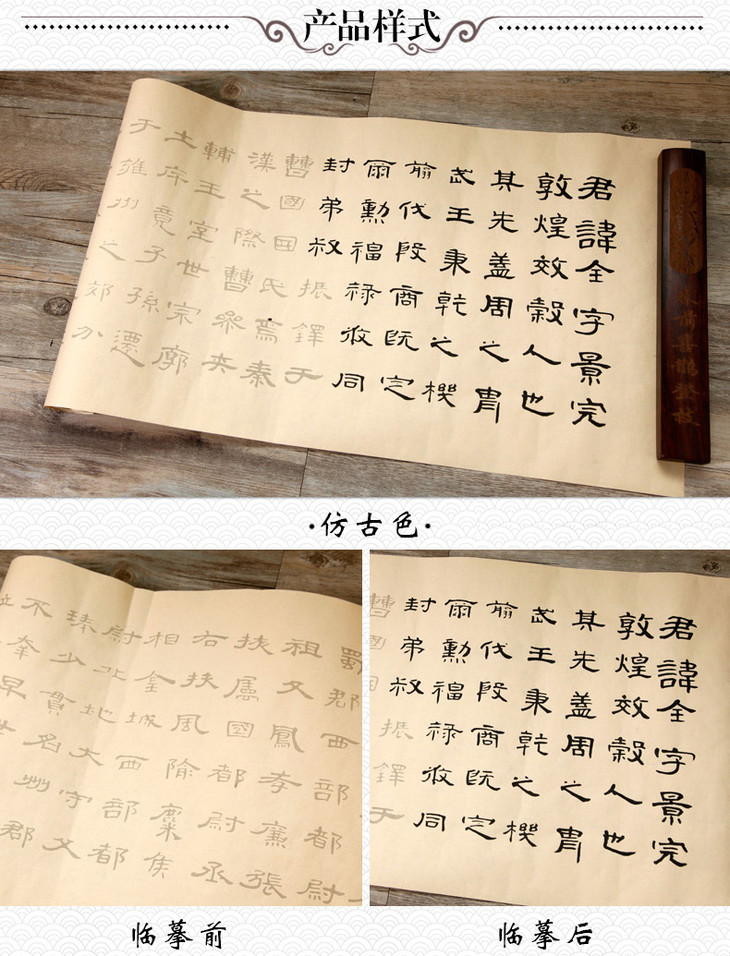 产品样式
君諱全字景完
敦煌效穀人也
其先蓋周之胄
武王秉乾之機
翦伐殷商既定
爾勳福祿攸同
封弟叔振鐸于
曹國因氏焉秦
漢之際曹參夾
輔王室世宗廓
土斥竟子孫遷
于雍州之郊分
·仿古色·
蜀郡西部都尉
祖父鳳孝廉張
扶屬國都尉丞
右扶風隃麋侯
相金城西部都
尉北地大守父
琫少貫名州郡
不幸早世
君諱全字景完
敦煌效穀人也
其先蓋周之胄
武王秉乾之機
翦伐殷商既定
爾勳福祿攸同
封弟叔振鐸于
曹國
临摹前
临摹后